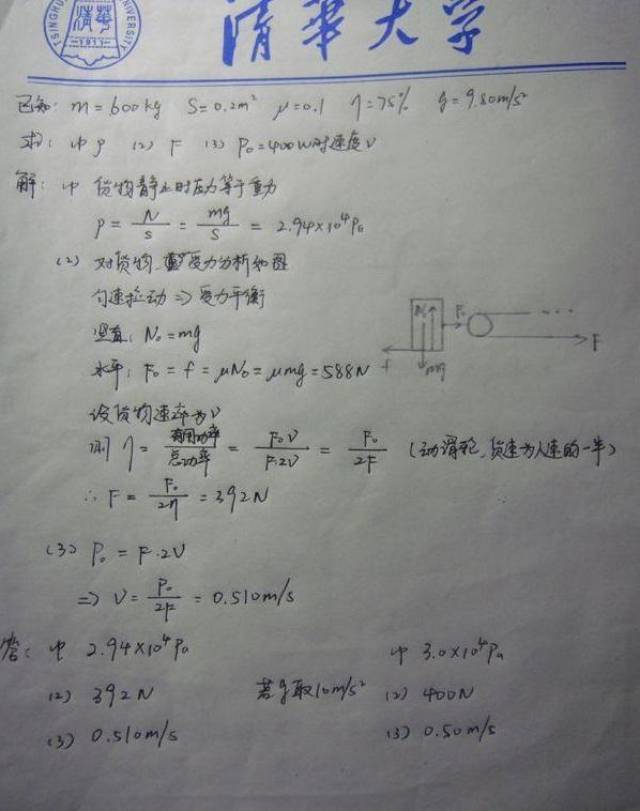 TSINGHUA UNIVERSITY
清華
-1911-
清華大学
已知: m=600kg S=0.2m² μ=0.1 η=75% g=9.80m/s²
求: (1) P (2) F (3) P₀=400W时速度v
解: (1) 货物静止时压力等于重力
P = N/S = mg/S = 2.94×10⁴Pa
(2) 对货物 受力分析如图
匀速拉动 ⇒ 受力平衡
竖直: N₀=mg
水平: F₀=f=μN₀=μmg=588N
N₀ F₀ F f mg
设货物速率为v
则 η = 有用功率/总功率 = F₀v/F·2v = F₀/2F (动滑轮,货速为人速的一半)
∴ F = F₀/2η = 392N
(3) P₀ = F·2v
⇒ v = P₀/2F = 0.510m/s
答: (1) 2.94×10⁴Pa (1) 3.0×10⁴Pa
(2) 392N 若g取10m/s² (2) 400N
(3) 0.510m/s (3) 0.50m/s